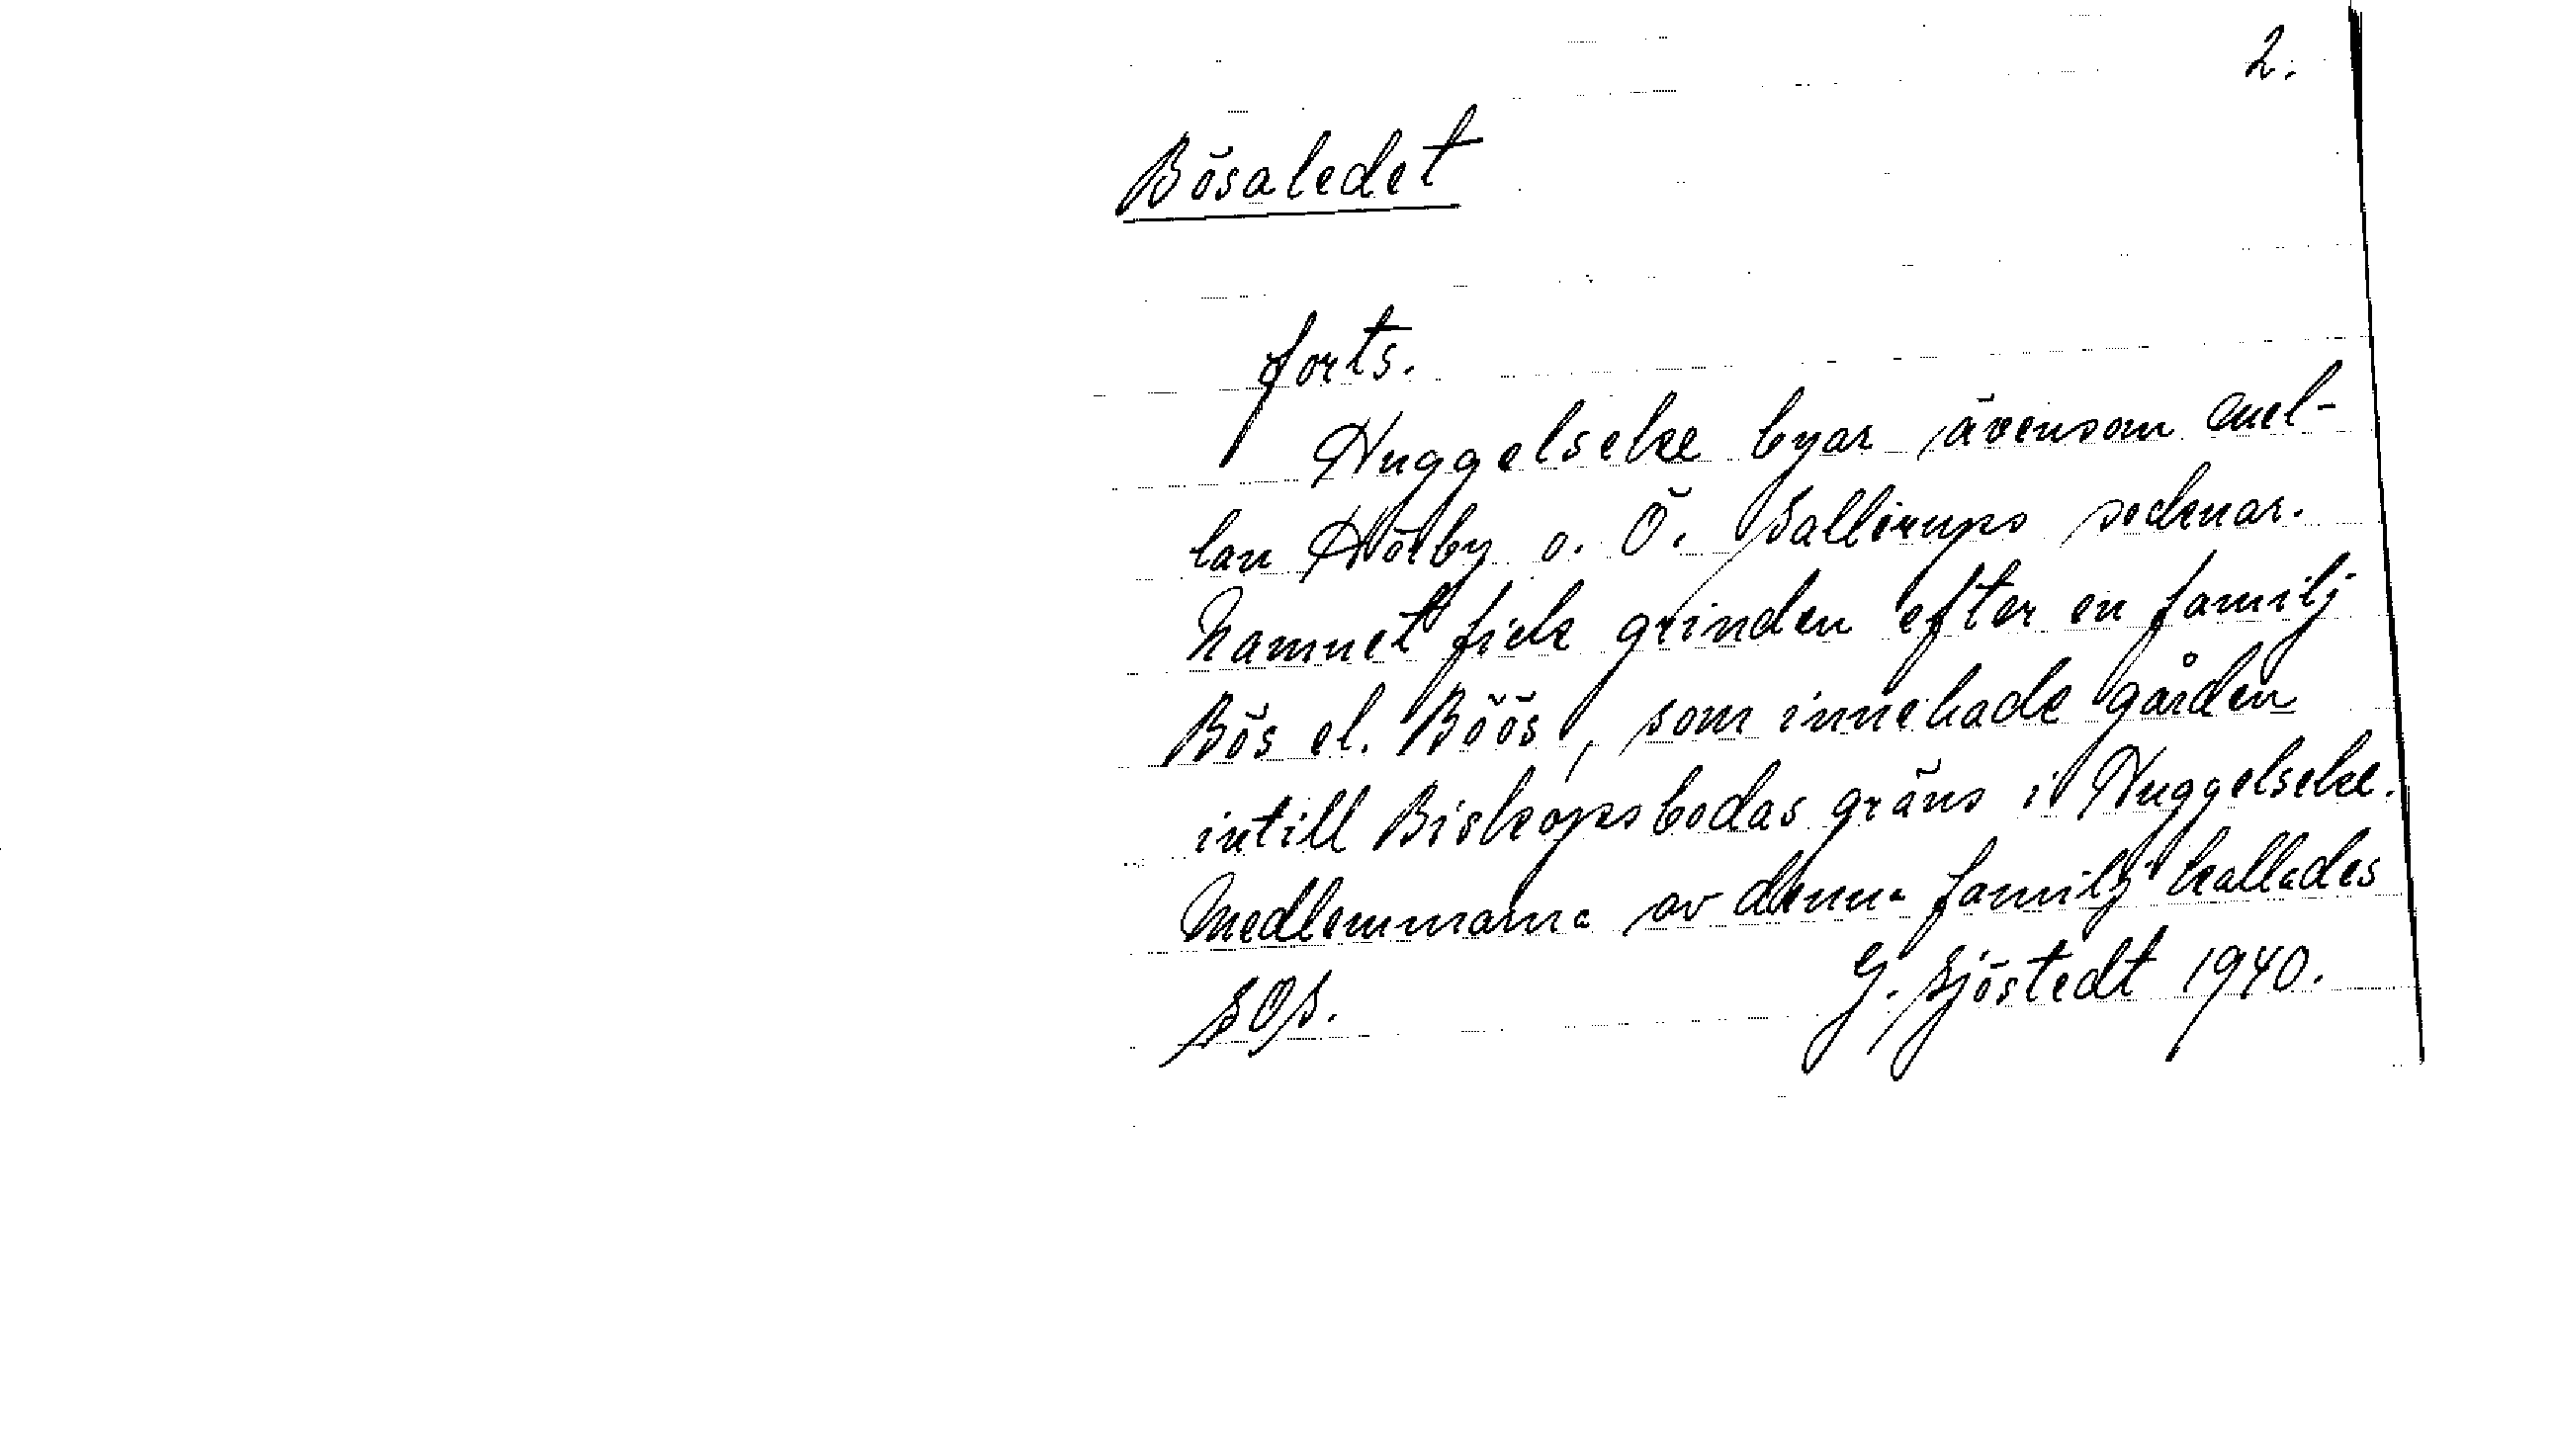 2.
Bösaledet
forts.
Huggelseke byar ävensom mel-
lan Hörby o. Ö. Sallerups socknar.
Namnet fick grinden efter en familj
Bös el. Böös, som innehade gården
intill Biskopsbodas gräns i Huggelseke.
Medlemmarna av denna familj kallades
SOS.
G. Sjöstedt 1940.